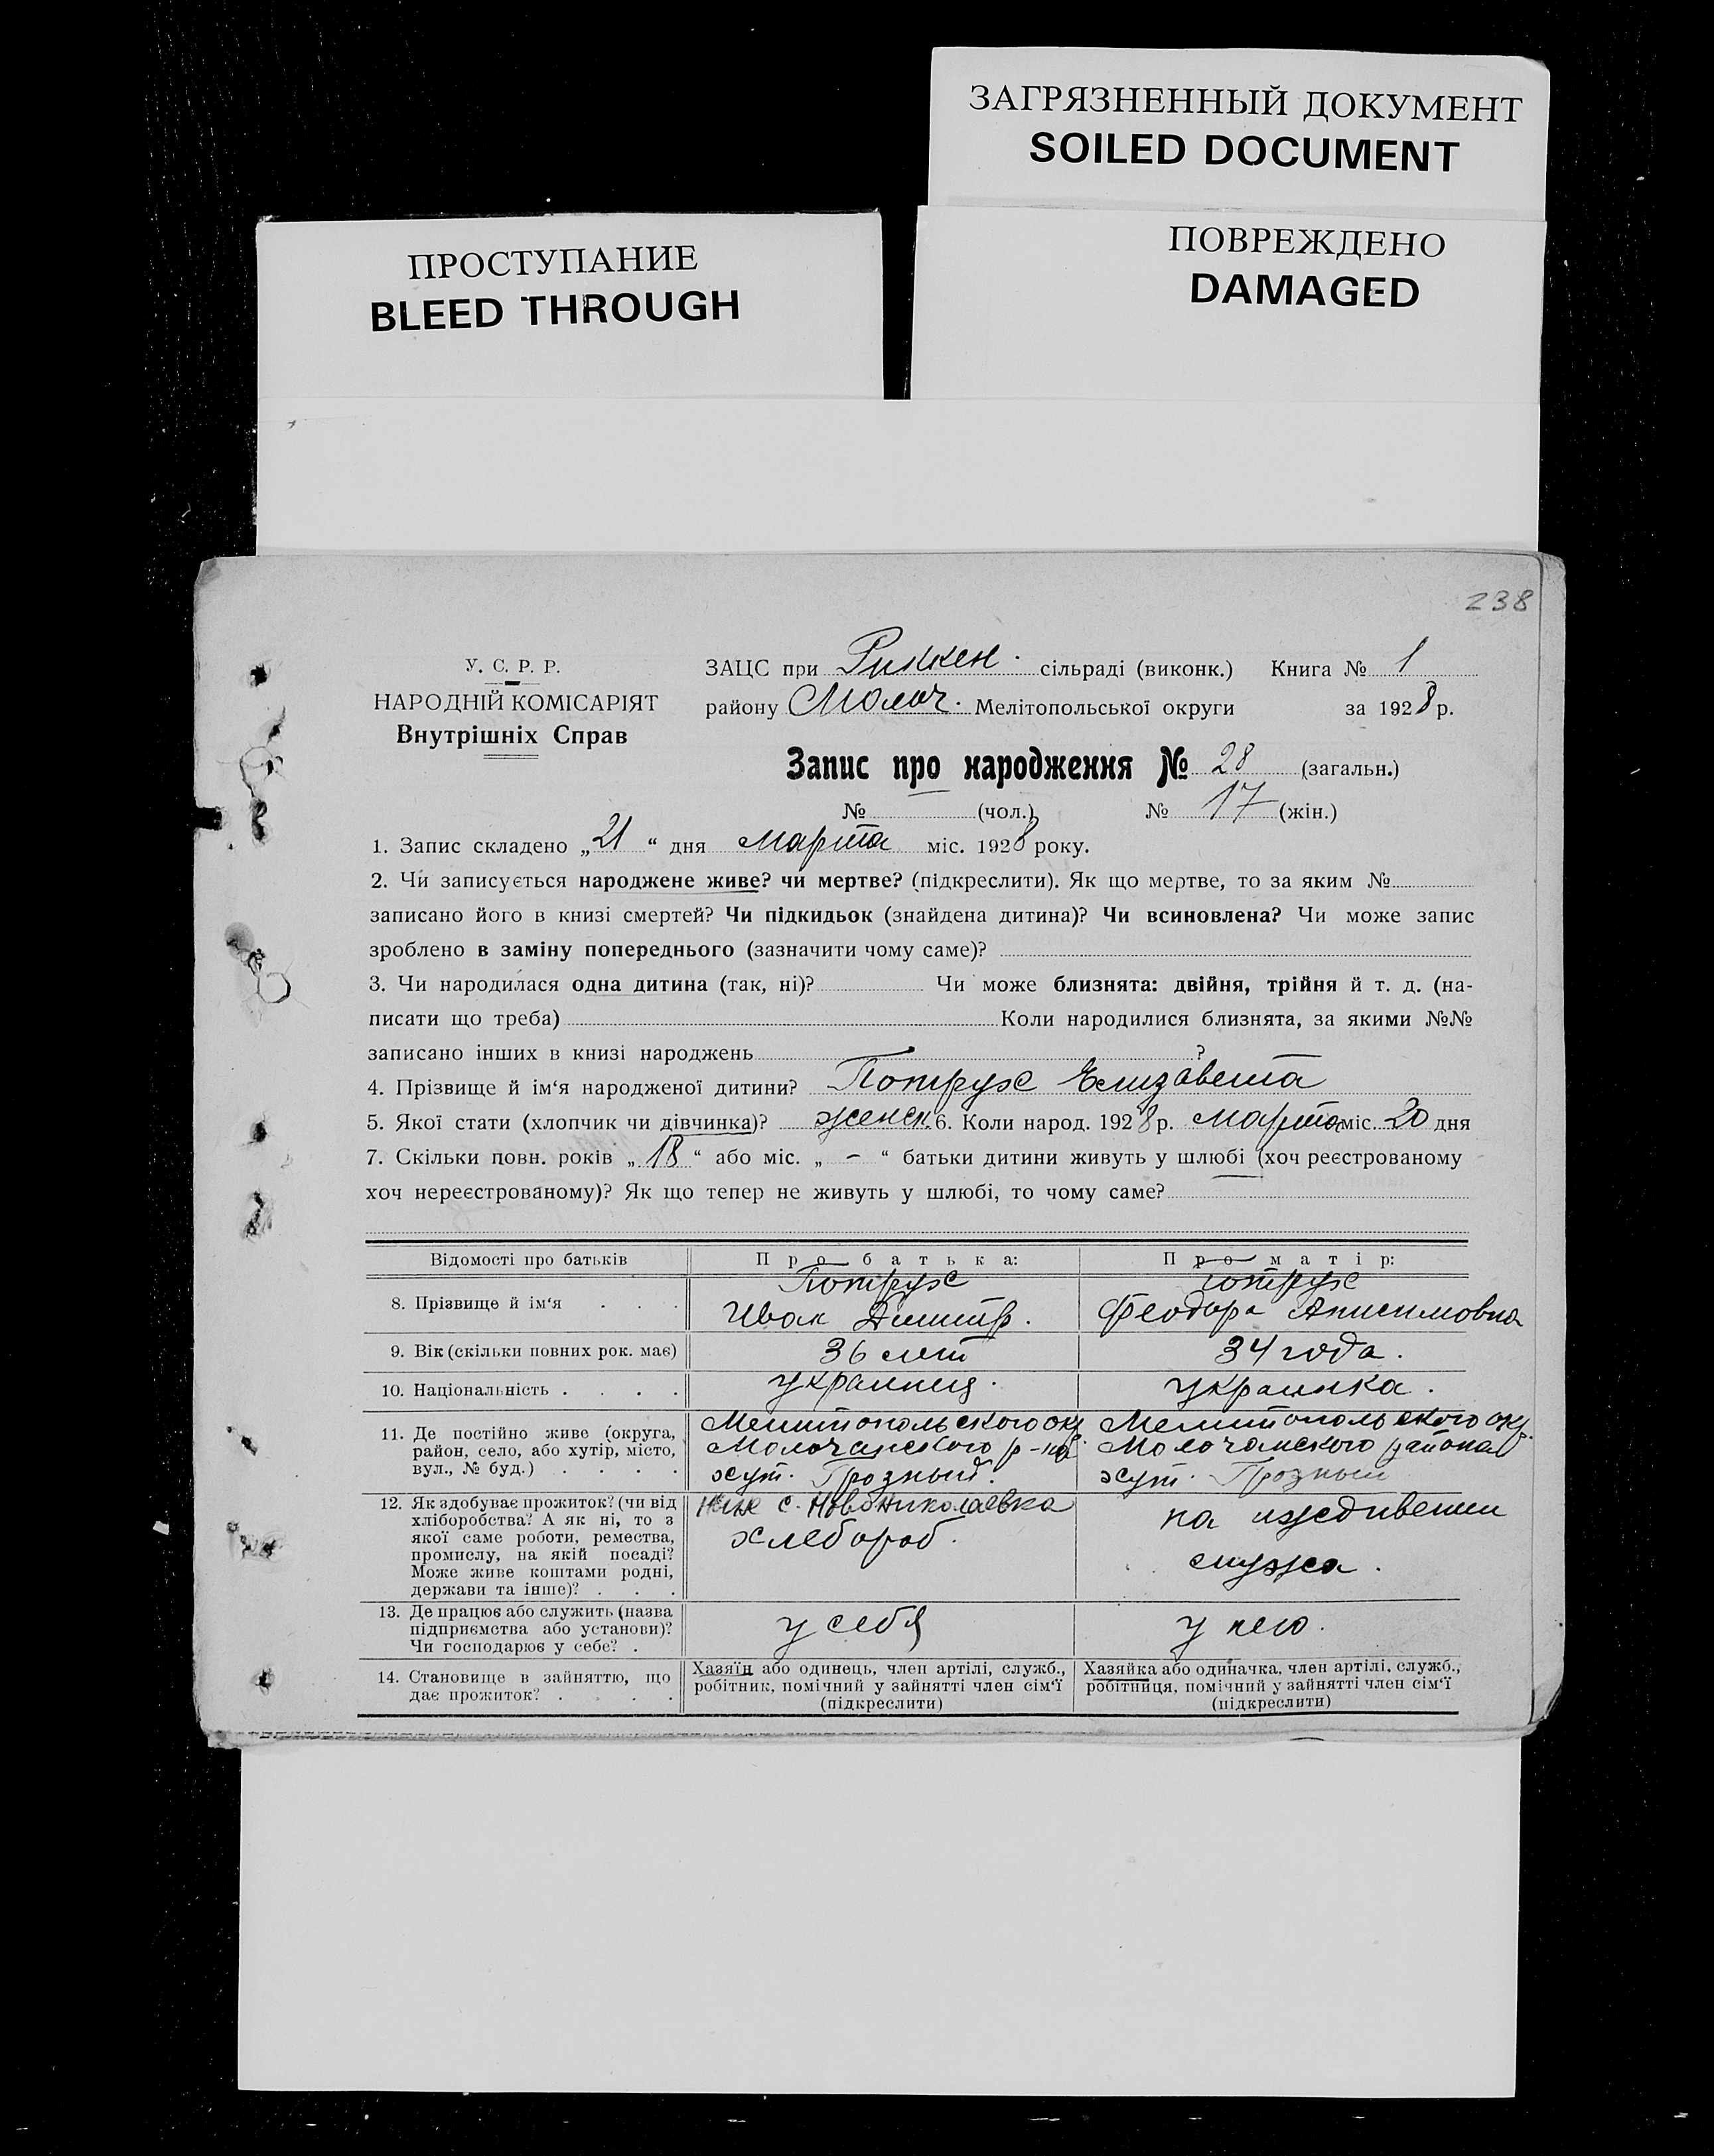 ЗАГРЯЗНЕННЫЙ ДОКУМЕНТ
SOILED DOCUMENT
ПРОСТУПАНИЕ
BLEED THROUGH
ПОВРЕЖДЕНО
DAMAGED
238
У. С. Р. Р.
НАРОДНІЙ КОМІСАРІЯТ
Внутрішніх Справ
ЗАЦС при сільраді (виконк.) Книга № 1
району Молоч. Мелітопольської округи за 1928 р.
Запис про народження № 28 (загальн.)
№ (чол.) № 17 (жін.)
1. Запис складено „21“ дня Марта міс. 1928 року.
2. Чи записується народжене живе? чи мертве? (підкреслити). Як що мертве, то за яким №
записано його в книзі смертей? Чи підкидьок (знайдена дитина)? Чи всиновлена? Чи може запис
зроблено в заміну попереднього (зазначити чому саме)?
3. Чи народилася одна дитина (так, ні)? Чи може близнята: двійня, трійня й т. д. (на-
писати що треба) Коли народилися близнята, за якими №№
записано інших в книзі народжень ?
4. Прізвище й ім‘я народженої дитини? Потрух Елизавета
5. Якої стати (хлопчик чи дівчинка)? женск. 6. Коли народ. 1928 р. Марта міс. 20 дня
7. Скільки повн. років „18“ або міс. „-“ батьки дитини живуть у шлюбі (хоч реєстрованому
хоч нереєстрованому)? Як що тепер не живуть у шлюбі, то чому саме?
Відомості про батьків
Про батька:
Про матір:
8. Прізвище й ім‘я . . .
Потрух
Иван Димитр.
Потрух
Феодора Анисимовна
9. Вік (скільки повних рок. має)
36 лет
34 года.
10. Національність . . . .
украинец.
украинка.
11. Де постійно живе (округа,
район, село, або хутір, місто,
вул., № буд.) . . . .
Мелитопольского окр.
Молочанского р-на
хут. Грозный.
Мелитопольского окр.
Молочанского района
хут. Грозный
12. Як здобуває прожиток? (чи від
хліборобства? А як ні, то з
якої саме роботи, ремества,
промислу, на якій посаді?
Може живе коштами родні,
держави та інше)? . . .
с. Новониколаевка
хлебороб.
на иждивении
мужа.
13. Де працює або служить (назва
підприємства або установи)?
Чи господарює у себе? .
у себя
у него.
14. Становище в зайняттю, що
дає прожиток? . . . .
Хазяїн або одинець, член артілі, служб.,
робітник, помічний у зайнятті член сім‘ї
(підкреслити)
Хазяйка або одиначка, член артілі, служб.,
робітниця, помічний у зайнятті член сім‘ї
(підкреслити)